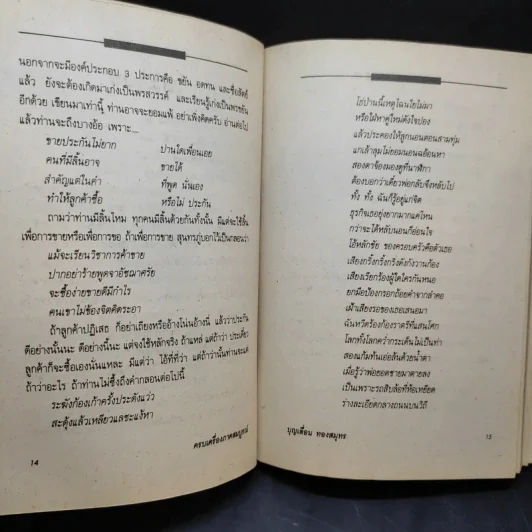 นอกจากจะมีองค์ประกอบ 3 ประการคือ ขยัน อดทน และซื่อสัตย์
แล้ว ยังจะต้องเกิดมาเก่งเป็นพรสวรรค์ และเรียนรู้เก่งเป็นพรขยัน
อีกด้วย เขียนมาเท่านี้ ท่านอาจจะยอมแพ้ อย่าเพิ่งคิดครับ อ่านต่อไป
แล้วท่านจะถึงบางอ้อ เพราะ...
ขายประกันไม่ยาก ปานใดเพื่อนเอย
คนที่มีลิ้นอาจ ขายได้
สำคัญแต่ในคำ ที่พูด นั่นเอง
ทำให้ลูกค้าซื้อ หรือไม่ ประกัน
ถามว่าท่านมีลิ้นไหม ทุกคนมีลิ้นด้วยกันทั้งนั้น มีแต่จะใช้ลิ้น
เพื่อการขายหรือเพื่อการขอ ถ้าเพื่อการขาย สุนทรภู่บอกไว้เป็นกลอนว่า
แม้จะเรียนวิชาการค้าขาย
ปากอย่าร้ายพูดจาอัชฌาศรัย
จะซื้อง่ายขายดีมีกำไร
คนเขาไม่ข้องจิตคิดระอา
ถ้าลูกค้าปฏิเสธ ก็อย่าเถียงหรืออ้างโน่นอ้างนี่ แล้วว่าประกัน
ดีอย่างนั้นนะ ดีอย่างนี้นะ แต่จงใช้หลักจริง ถ้าแต่ แต่ถ้าว่า ประเดี๋ยว
ลูกค้าก็จะซื้อเองนั่นแหละ มีแต่ว่า ไอ้ที่ที่ว่า แต่ถ้าว่านั้นท่านจะแต่
ถ้าว่าอะไร ถ้าท่านไม่ซึ้งถึงคำกลอนต่อไปนี้
ระฆังก้องเก้าครั้งประดังแว่ว
สะดุ้งแล้วเหลียวแลชะแง้หา
ครบเครื่องภาคสมบูรณ์
14
โอ้ป่านนี้เหตุไฉนใยไม่มา
หรือไฝ่หาคู่ใหม่ดังใจปอง
แล้วประคองให้ลูกนอนตอนสามทุ่ม
แกเล้าลุมไม่ยอมนอนฉอ้อนหา
สองตาจ้องมองดูที่นาฬิกา
ต้องบอกว่าเดี๋ยวพ่อกลับจึงหลับไป
ทั้ง ทั้ง ฉันก็รู้อยู่แก่จิต
ธุรกิจเธอยุ่งยากมากแค่ไหน
กว่าจะได้หลับนอนก็อ่อนใจ
โอ้หลักชัย ของครอบครัวคือตัวเธอ
เสียงกริ้งกริ้งกริ่งดังกังวานก้อง
เสียงเรียกร้องผู้ใดใครกันหนอ
ยกมือป้องกรอกถ้อยคำจากลำคอ
เฝ้าเสียงรอของเธอเสนอมา
ฉันหวีดร้องก้องราตรีที่แสนโศก
โลกทั้งโลกคว่ำกระเด็นไม่เป็นท่า
สองแก้มท้นเอ่อล้นด้วยน้ำตา
เมื่อรู้ว่าพ่อยอดชายมาตายลง
เป็นเพราะรถสิบล้อที่ห้อเหยียด
ร่างละเอียดกลางถนนบนวิถี
บุญเตือน ทองสมุทร
15